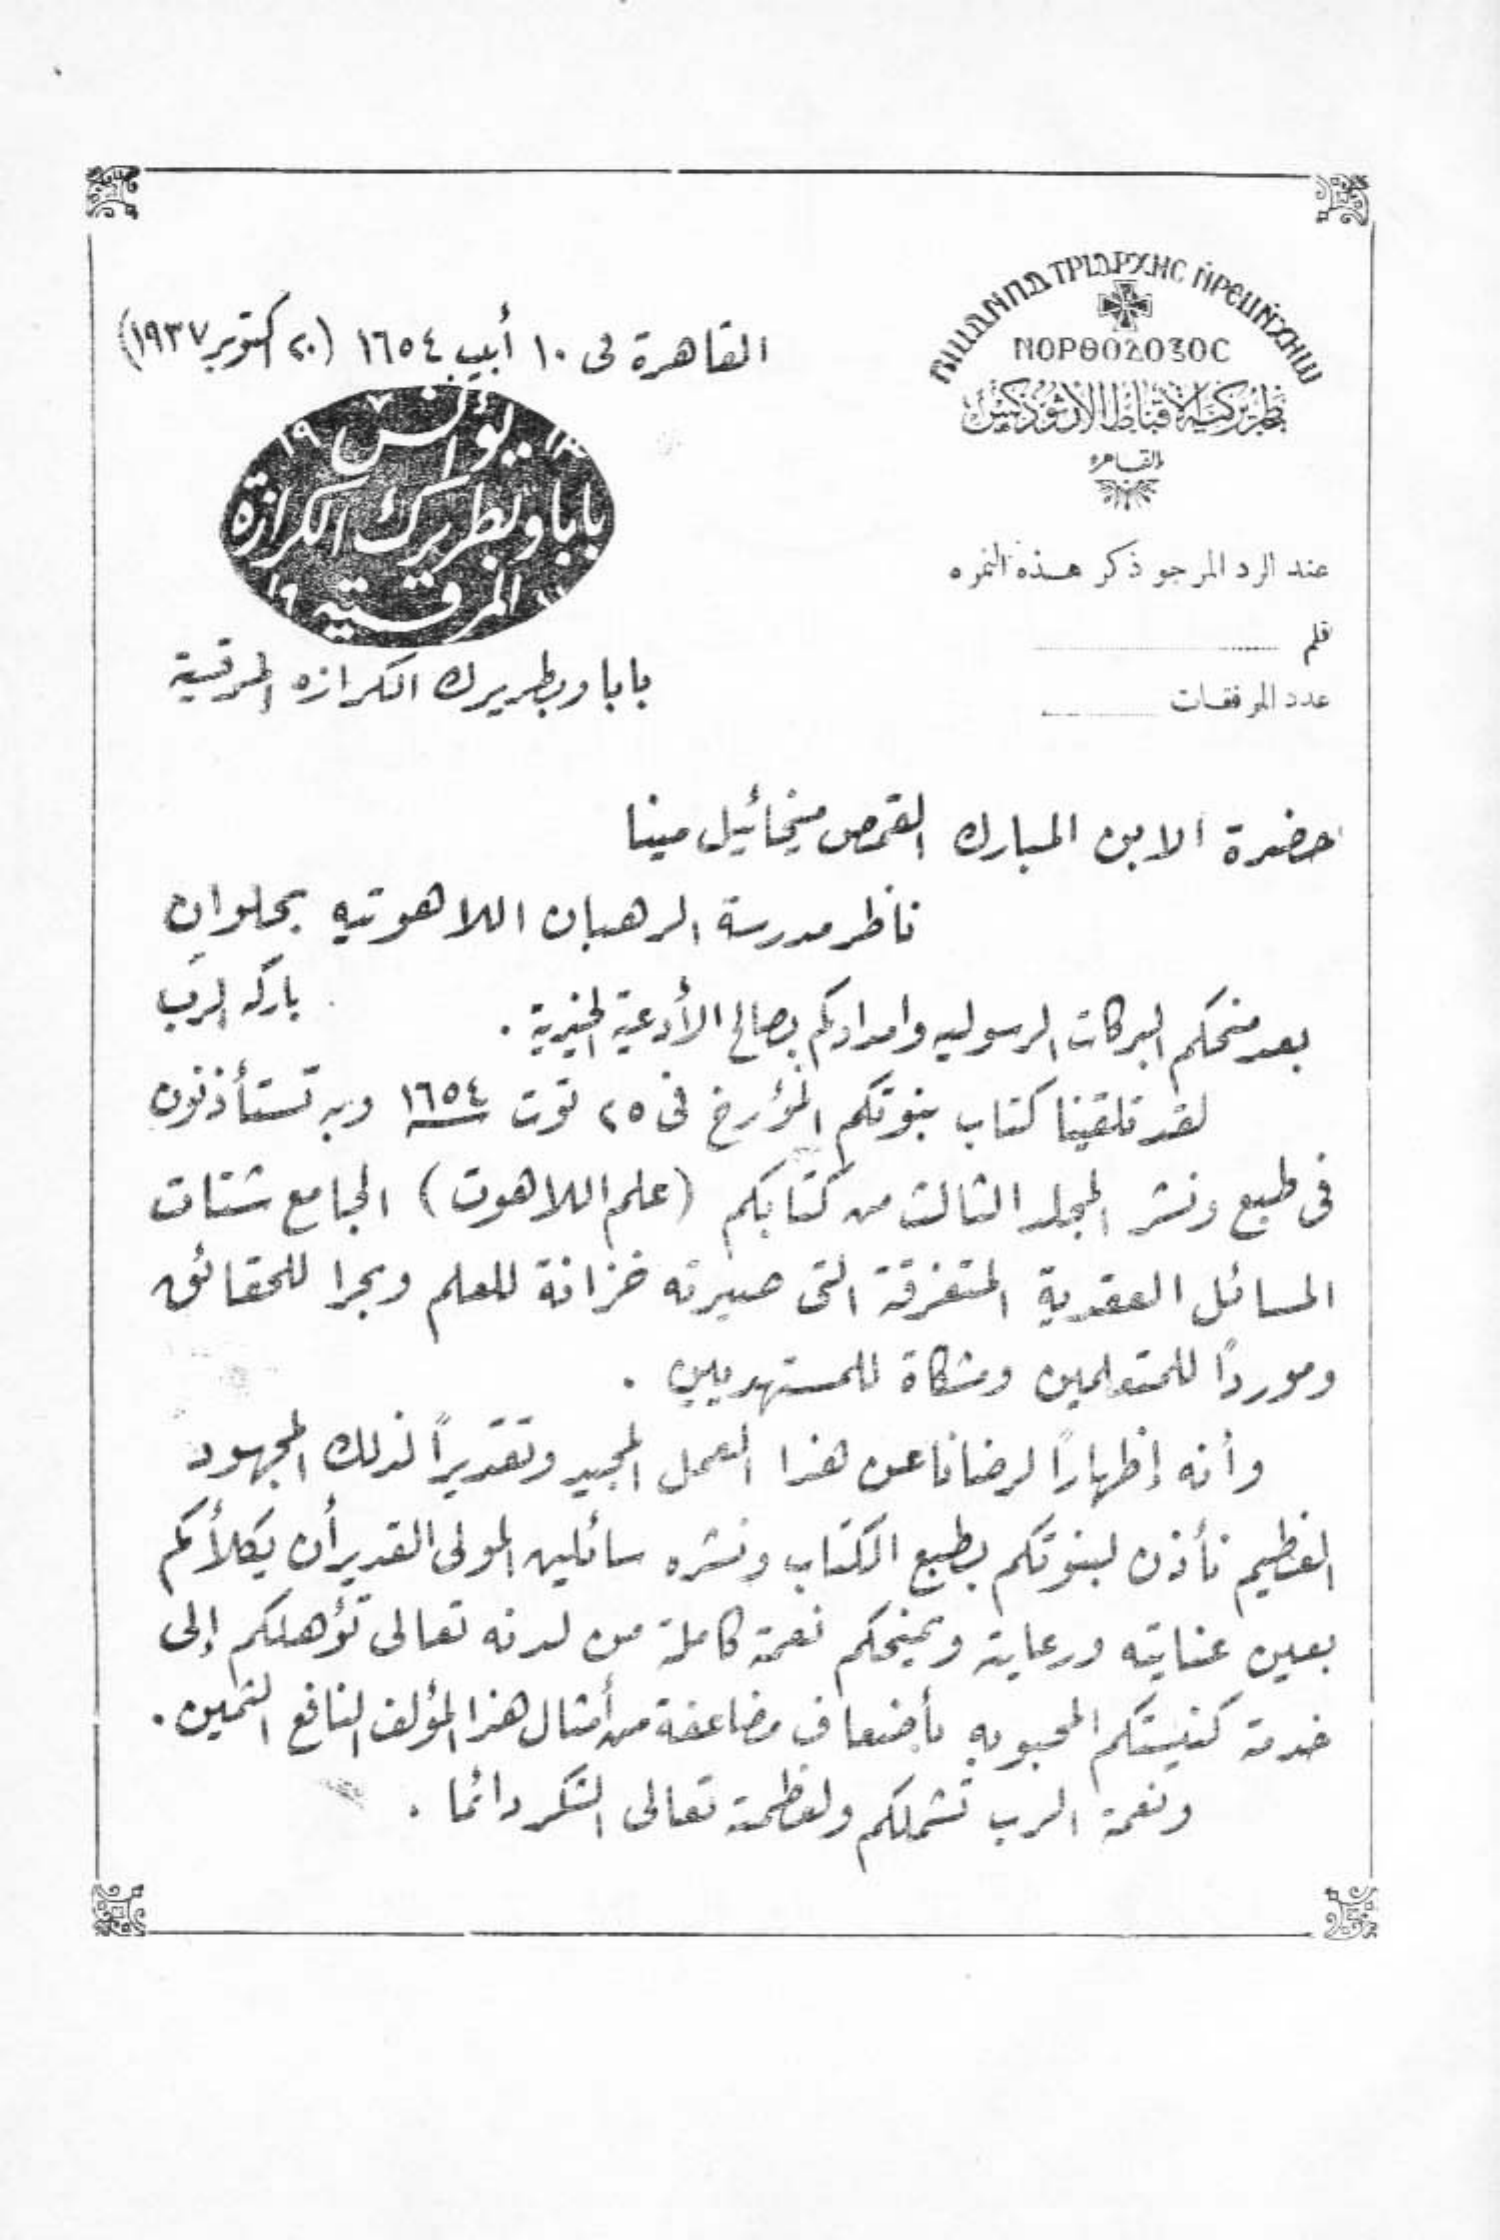 ⲚⲞⲢⲐⲞⲆⲞⲜⲞⲤ
بطريركية الاقباط الارثوذكس
بالقاهره
القاهرة فى ١٠ أبيب ١٦٥٤ (٢٠ اكتوبر ١٩٣٧)
يوأنس
١٩
بابا وبطريرك الكرازة
المرقسيه
بابا وبطريرك الكرازه المرقسية
عند الرد المرجو ذكر هذه النمره
قلم
عدد المرفقات
حضرة الابن المبارك القمص ميخائيل مينا
ناظر مدرسة الرهبان اللاهوتيه بحلوان
باركه الرب
بعد منحكم البركات الرسوليه وامدادكم بصالح الأدعية الخيرية .
لقد تلقينا كتاب بنوتكم المؤرخ فى ٢٥ توت ١٦٥٤ وبه تستأذنون
فى طبع ونشر المجلد الثالث من كتابكم (علم اللاهوت) الجامع شتات
المسائل العقدية المتفرقة التى صيرته خزانة للعلم وبحرا للحقائق
وموردًا للمتعلمين ومشكاة للمستهديين .
وأنه إظهارًا لرضانا عن هذا العمل المجيد وتقديرًا لذلك المجهود
العظيم نأذن لبنوتكم بطبع الكتاب ونشره سائلين المولى القدير أن يكلأكم
بعين عنايته ورعايته ويمنحكم نعمة كاملة من لدنه تعالى تؤهلكم إلى
خدمة كنيستكم المحبوبه بأضعاف مضاعفة من أمثال هذا المؤلف النافع الثمين .
ونعمة الرب تشملكم ولعظمته تعالى الشكر دائما .